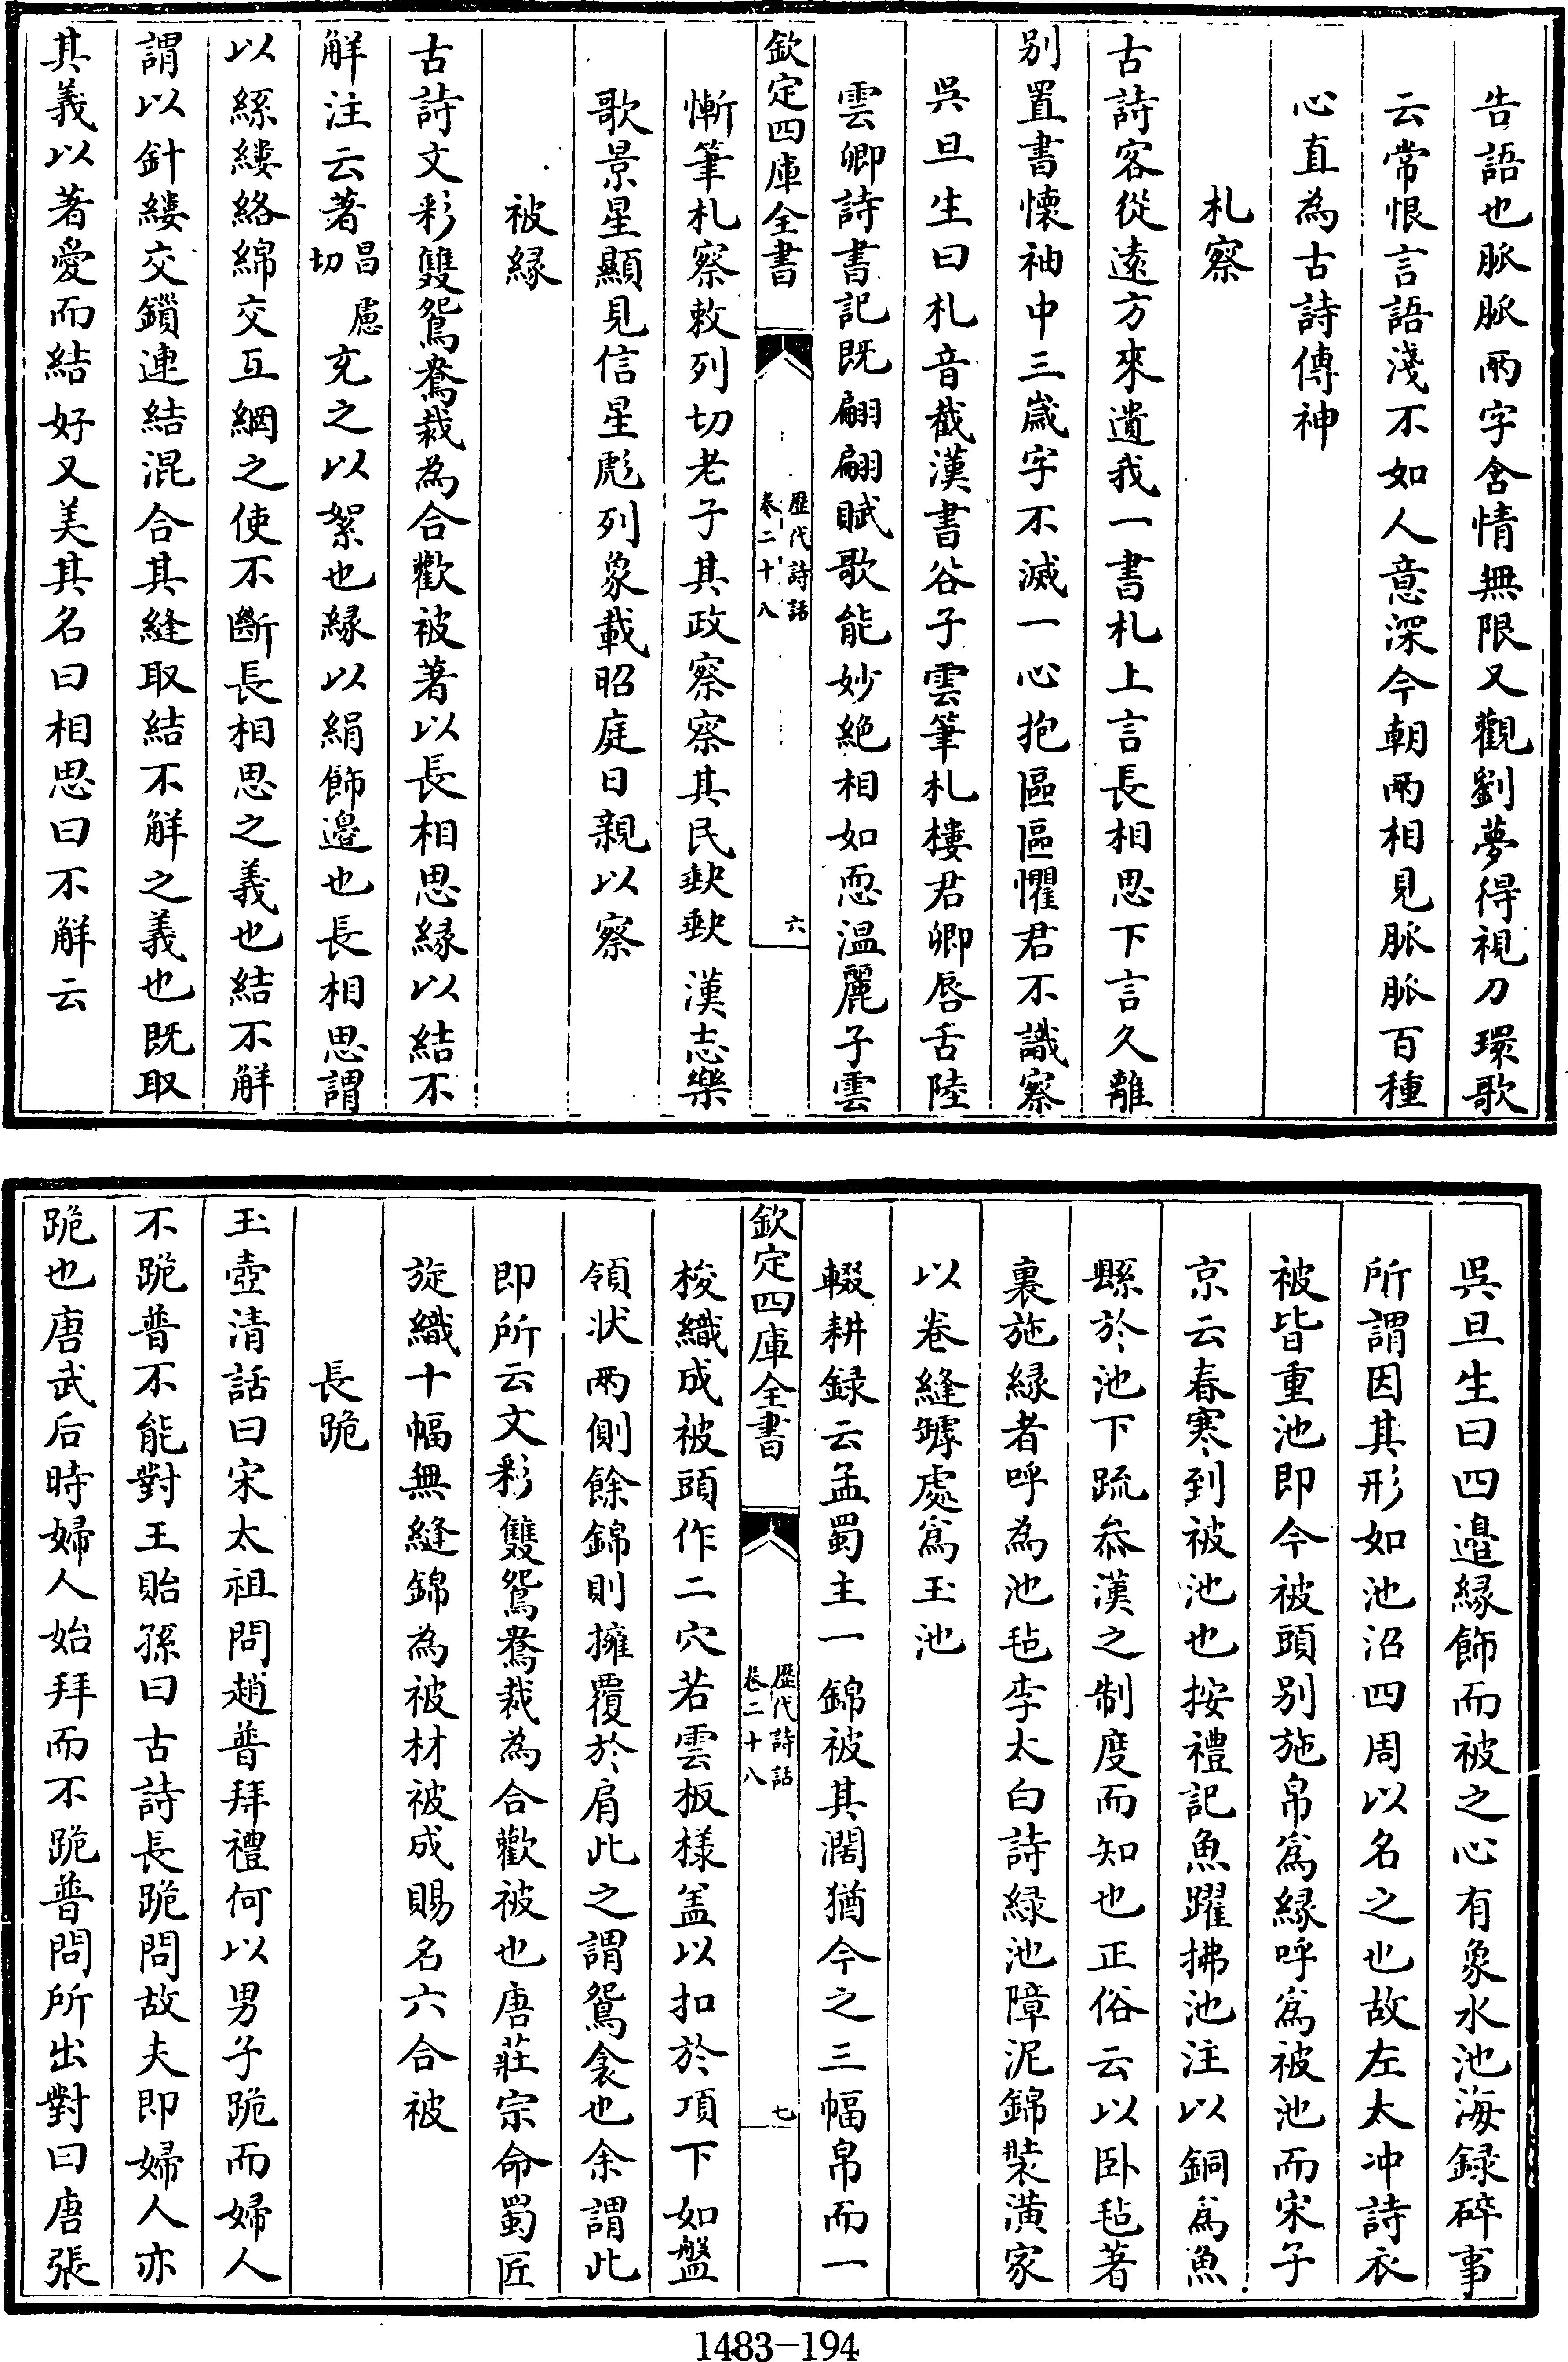 告語也脈脈兩字含情無限又觀劉夢得視刀環歌
云常恨言語淺不如人意深今朝兩相見脈脈百種
心直為古詩傳神
札察
古詩客從遠方來遺我一書札上言長相思下言久離
別置書懷袖中三歲字不滅一心抱區區懼君不識察
吳旦生曰札音截漢書谷子雲筆札樓君卿唇舌陸
雲卿詩書記既翩翩賦歌能妙絶相如恧温麗子雲
欽定四庫全書
歴代詩話
卷二十八
六
慚筆札察敕列切老子其政察察其民缺缺 漢志樂
歌景星顯見信星彪列象載昭庭日親以察
被緣
古詩文彩雙鴛鴦裁為合歡被著以長相思緣以結不
解注云著昌慮切充之以絮也緣以絹飾邊也長相思謂
以絲縷絡綿交互網之使不斷長相思之義也結不解
謂以針縷交鎖連結混合其縫取結不解之義也既取
其義以著愛而結好又美其名曰相思曰不解云
吳旦生曰四邊緣飾而被之心有象水池海録碎事
所謂因其形如池沼四周以名之也故左太冲詩衣
被皆重池即今被頭别施帛為緣呼為被池而宋子
京云春寒到被池也按禮記魚躍拂池注以銅為魚
縣於池下疏叅漢之制度而知也正俗云以卧毡著
裏施緣者呼為池毡李太白詩綠池障泥錦裝潢家
以卷縫罅處為玉池
輟耕録云孟蜀主一錦被其濶猶今之三幅帛而一
欽定四庫全書
歴代詩話
卷二十八
七
梭織成被頭作二穴若雲板樣盖以扣於項下如盤
領状兩側餘錦則擁覆於肩此之謂鴛衾也余謂此
即所云文彩雙鴛鴦裁為合歡被也唐莊宗命蜀匠
旋織十幅無縫錦為被材被成賜名六合被
長跪
玉壺清話曰宋太祖問趙普拜禮何以男子跪而婦人
不跪普不能對王貽孫曰古詩長跪問故夫即婦人亦
跪也唐武后時婦人始拜而不跪普問所出對曰唐張
1483-194